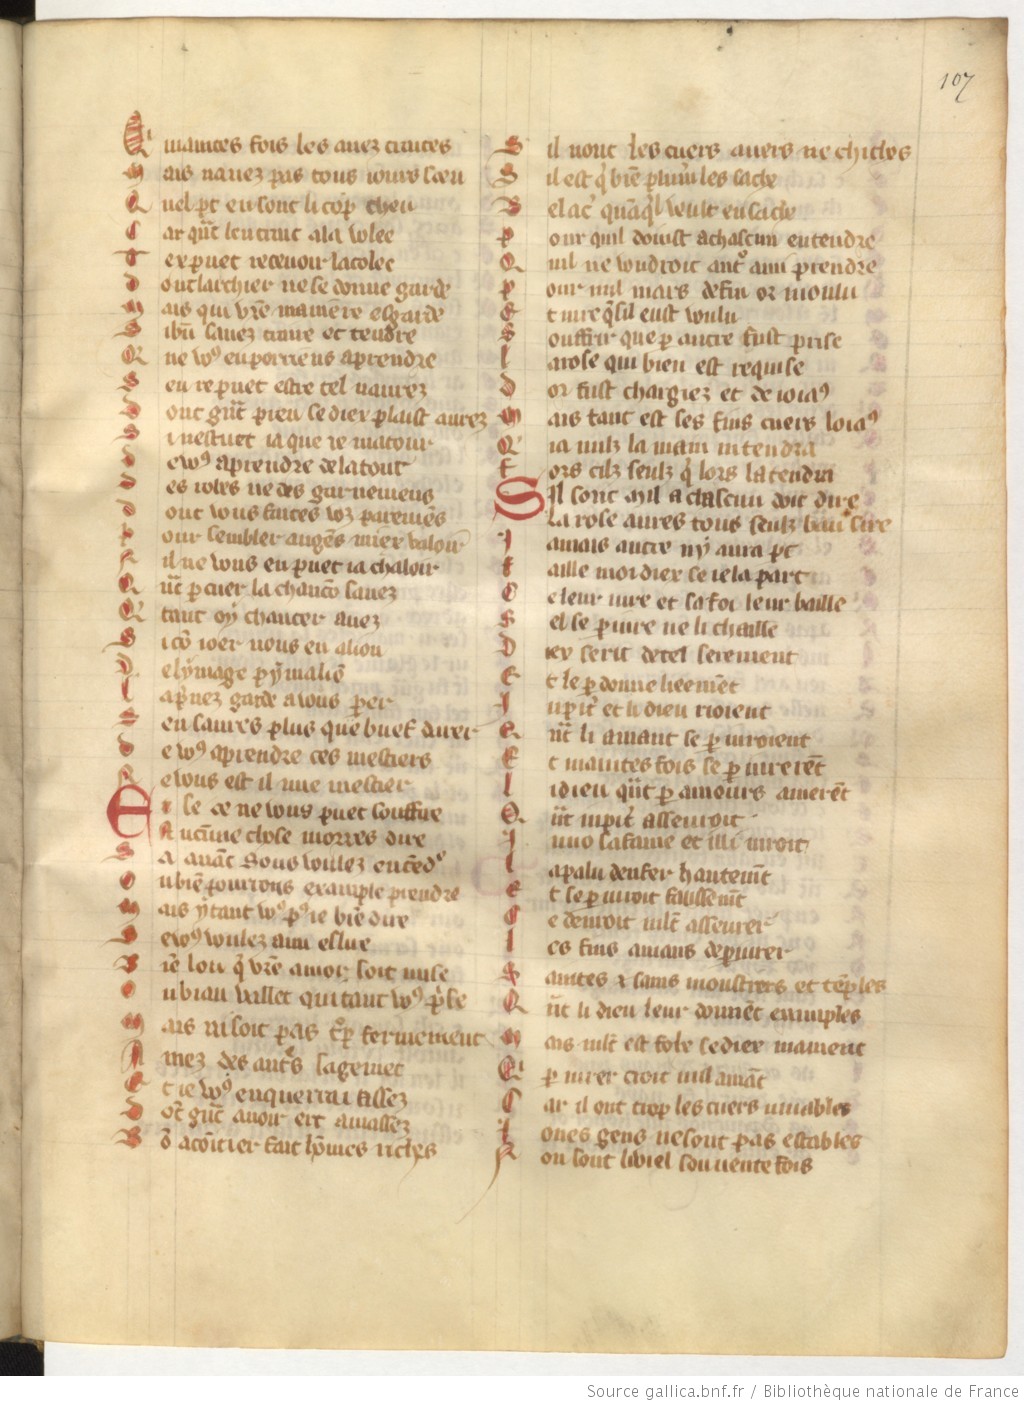 107
Q maintes fois les avez
M ais navez pas tous iours
Q uel pt en sont li cop cheu
C ar qut len a la volee
T ex puet recevoir la colee
D ont larchier ne se donne garde
M ais qui vre maniere esgarde
S i bn savez et tendre
Q ne vo9 en porriens aprendre
S en repuet estre tel naurez
D ont gnt pieu se dieu plaist aurez
S i nestuet ia que ie matour
D e vo9 aprendre de latour
D es ioies ne des garnemens
D ont vous faites voz paremes
P our sembler au gens mier valoir
K il ne vous en puet ia chaloir
Q nt p cuer la chanco savez
Q tant oy chanter avez
S ico ioer nous en alion
D e lymage pymalio
L aprnez garde a vous per
S en saures plus que buef darer
D e vo9 aprendre ces mestiers
N e vous est il mie mestier
E t se ce ne vous puet souffire
A ucune chose morres dire
S a avat sous voulez ented'
O u bie pourrons example prendre
M ais ytant vo9 ie bie dire
S e vo9 voulez ami eslire
B ie lou q vre amor soit mise
O u biau vallet qui tant vo9 prise
M ais ni soit pas trop fermement
A mez des autrs sagemet
E t ie vo9 enquerrai assez
D ot gnt avoir ert amassez
B o acointier fait homes riches
S il nont les cuers avers ne chiches
S il est q bie plumer les sache
B el ac' quaql veult en sache
P our quil doinst a chascun entendre
Q uil ne voudroit autr ami prendre
P our mil mars de fin or moulu
E t iure q sil eust voulu
S ouffrir que p autre fust prise
L a rose qui bien est requise
D or fust chargiez et de ioia9
M ais tant est ses fins cuers loia9
Q ia nulz la main ni tendra
F ors cilz seulz q lors la tendra
S Il sont mil a chascun doit dire
La rose aures tous seulz biau sire
J amais autre ny aura pt
F aille moi dieu se ie la part
C e leur iure et sa foi leur baille
S el se piure ne li chaille
D iex se rit de tel serement
E t le pdonne lieemet
J upit' et li dieu rioient
Q nt li amant se piuroient
E t maintes fois se piureret
L i dieu qnt p amours ameret
Q nt iupit' asseuroit
J uno sa fame et illi iuroit
L a palu denfer hautemt
E t se piuroit faussemt
C e devroit mlt asseurer
L es fins amans de piurer
S aintes & sains monstiers et teples
Q nt li dieu leur donnet examples
M ais mlt est fole se dieu mament
Q p iurer croit nul amat
C ar il ont trop les cuers muables
J ones gens ne sont pas estables
N on sont li viel souvente fois
Source gallica.bnf.fr / Bibliothèque nationale de France